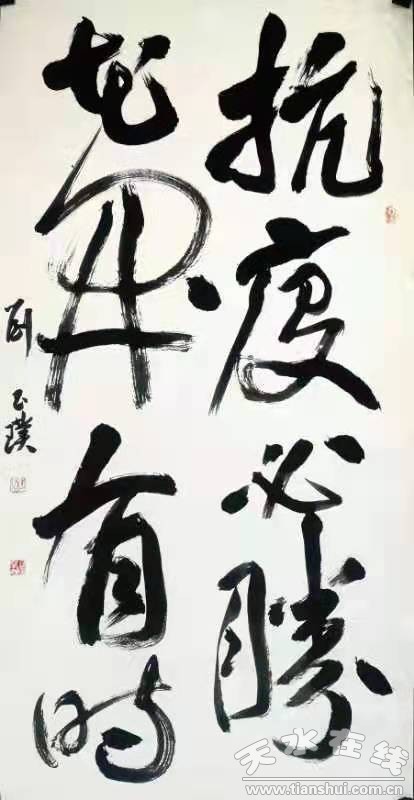 抗疫必勝
花開有时
刘玉璞
天水在线
www.tianshui.com.cn